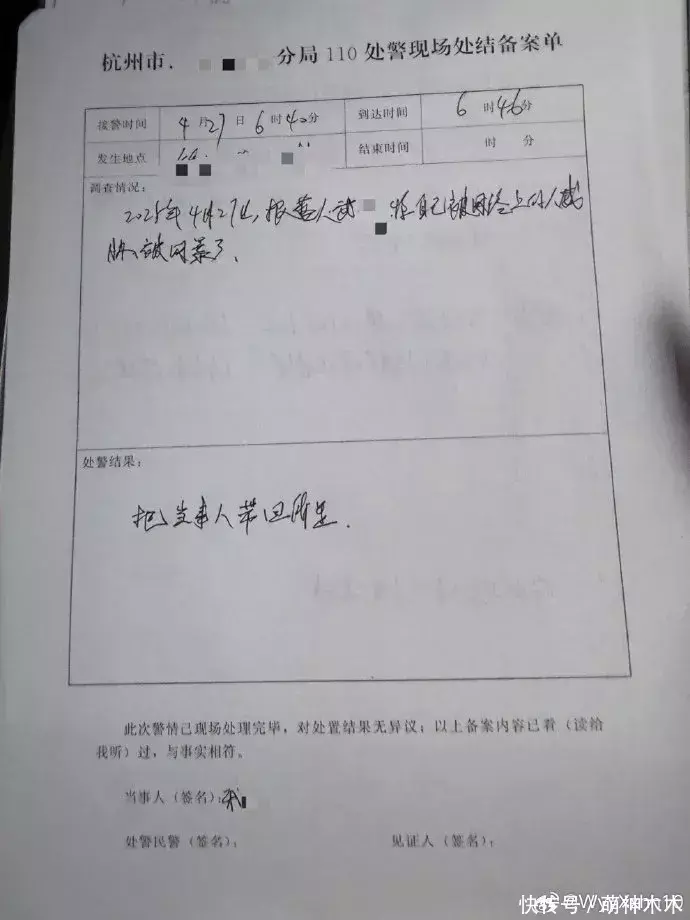 杭州市. 分局110处警现场处结备案单
接警时间 4月27日6时40分 到达时间 6时46分
发生地点 结束时间 时 分
调查情况:
2025年4月27日,报警人武 称自己被网络上的人威
胁,被网暴了.
处警结果:
把当事人带回所里.
此次警情已现场处理完毕,对处置结果无异议;以上备案内容已看(读给
我听)过,与事实相符。
当事人(签名): 武
处警民警(签名): 见证人(签名):
快传号/萌神木木